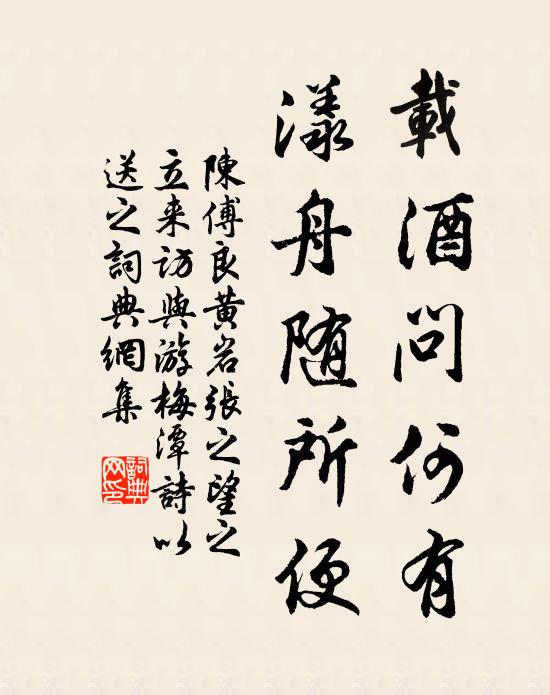 載酒問何有
漾舟随所便
陳傅良黄岩張之望之
立来訪與游梅潭詩以
送之詞典網集
詞典網印